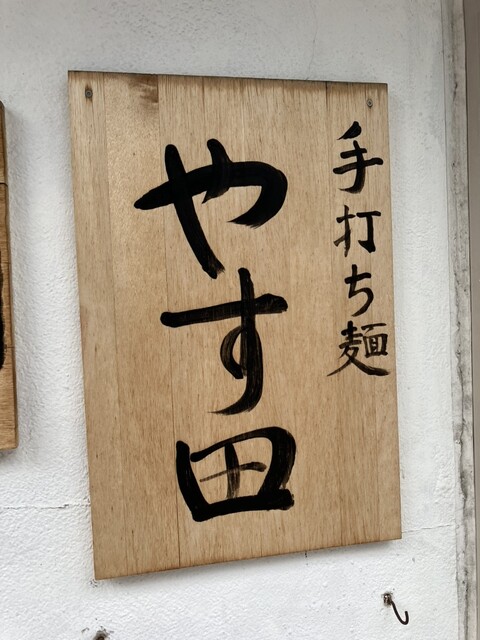 手打ち麺
やす田